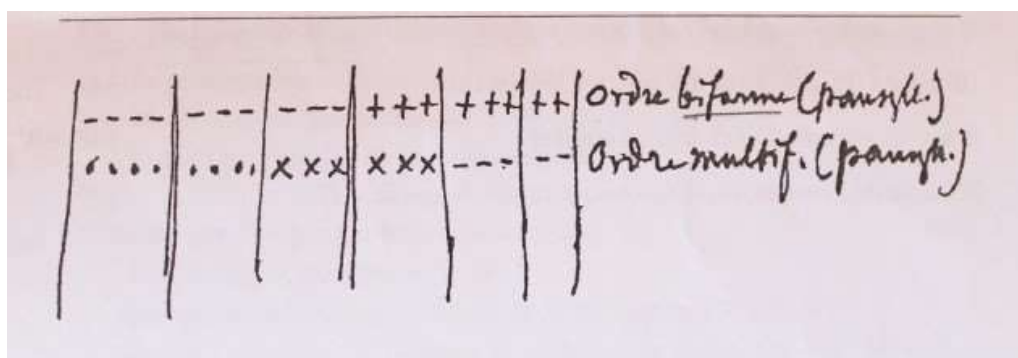 ---- | --- | --- | +++ | +++ | ++ | Ordre biforme (pansyst.)
.... | .... | xxx | xxx | --- | -- | Ordre multif. (pansyst.)